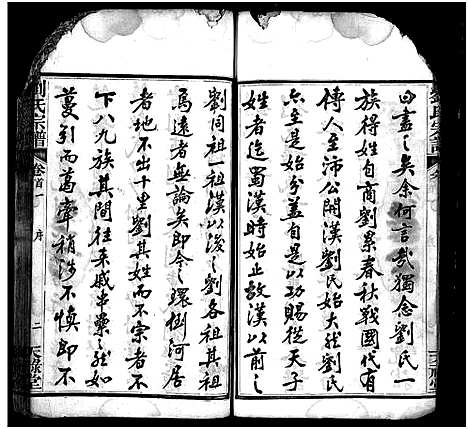 曰盡之矣余何言哉獨念劉氏一
族得姓自商劉累春秋戰國代有
傳人至沛公開漢劉氏始大然劉氏
之主是始分蓋自是以功賜從天子
姓者迄蜀漢時始止故漢以前之
劉同祖一祖漢以後之劉各祖其祖
焉遠者無論矣即今之環倒河居
者地不出十里劉其姓而不宗者不
下八九族其間往來戚串纍纍然如
蔓引而葛牽稍涉不慎即不
劉氏宗譜
卷首
序
二
天祿堂